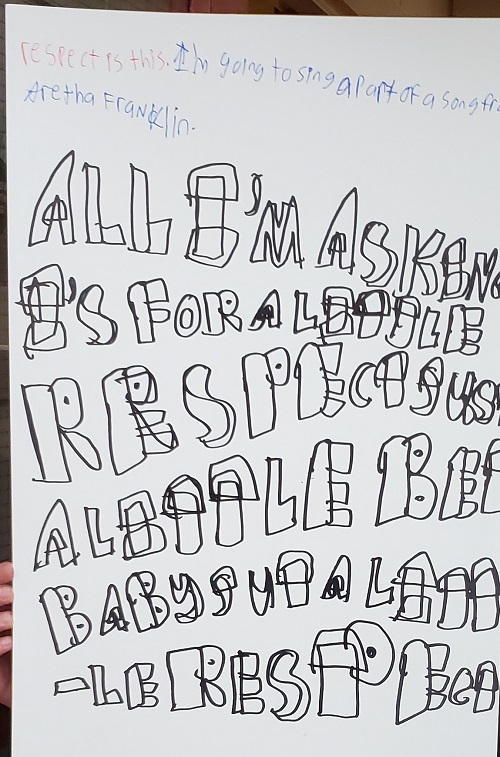 respect is this. I'm going to sing a part of a song fro
Aretha Franklin.
ALL I'M ASKING
I'S FOR A LITTLE
RESPECT JUST
A LITTLE
BABY JUST A LITT
-LE RESPECT